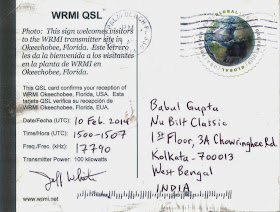 WRMI QSL
Photo: This sign welcomes visitors
to the WRMI transmitter site in
Okeechobee, Florida. Este letrero
les da la bienvenida a los visitantes
en la planta de WRMI en
Okeechobee, Florida.
This QSL card confirms your reception of
WRMI Okeechobee, Florida, USA. Esta
tarjeta QSL verifica su recepción de
WRMI Okeechobee, Florida, EUA.
Date/Fecha (UTC): 10 Feb. 2014
Time/Hora (UTC): 1500-1507
Freq./Frec. (kHz): 17790
Transmitter Power: 100 kilowatts
Jeff White
www.wrmi.net
GLOBAL
Babul Gupta
Nu Bilt Classic
1st Floor, 3A Chowringhee Rd.
Kolkata-700013
West Bengal
INDIA